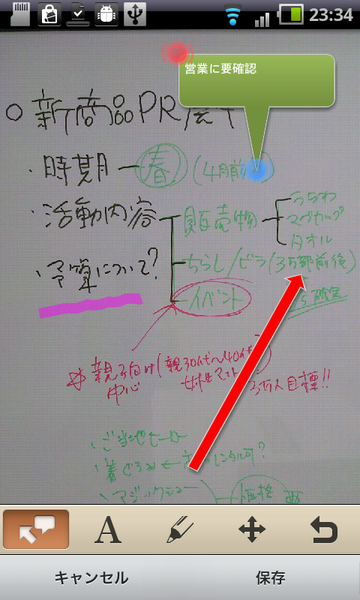 23:34
営業に要確認
新商品PR
・時期 ― 春 (4月前
・活動内容
販売物
うちわ
マグカップ
タオル
ちらし/ビラ(3万部前後)
イベント
・予算について?
親子向け(親30代〜40代
中心
3万人目標!!
・ご当地ヒーロー
・着ぐるみ
・マジックショー
A
キャンセル
保存